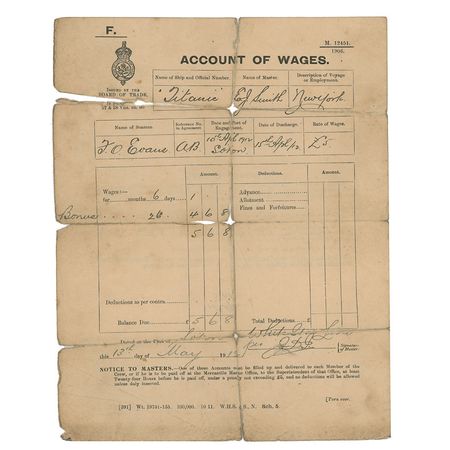 F.
M. 12451.
1906.
ISSUED BY THE
BOARD OF TRADE.
ACCOUNT OF WAGES.
Name of Ship and Official Number.
Name of Master.
Description of Voyage
or Employment.
"Titanic"
E J Smith
New York.
Name of Seaman.
Reference No.
in Agreement.
Date and Port of
Engagement.
Date of Discharge.
Rate of Wages.
F. O Evans
A.B.
10th Apl 1912
Soton
15th Apl 12
£5
Amount.
Deductions.
Amount.
Wages:—
for months 6 days
1
Bonus
4 6 8
5 6 8
Advance
Allotment
Fines and Forfeitures
Deductions as per contra
Balance Due £ 5 6 8
Total Deductions £
Dated at the Port of Soton
White Star Line
this 13th day of May 1912
per
Signature
of Master.
NOTICE TO MASTERS.—One of these Accounts must be filled up and delivered to each Member of the
Crew, or if he is to be paid off at the Mercantile Marine Office, to the Superintendent of that Office, at least
Twenty-four Hours before he is paid off, under a penalty not exceeding £5, and no deductions will be allowed
unless duly inserted.
[Turn over.